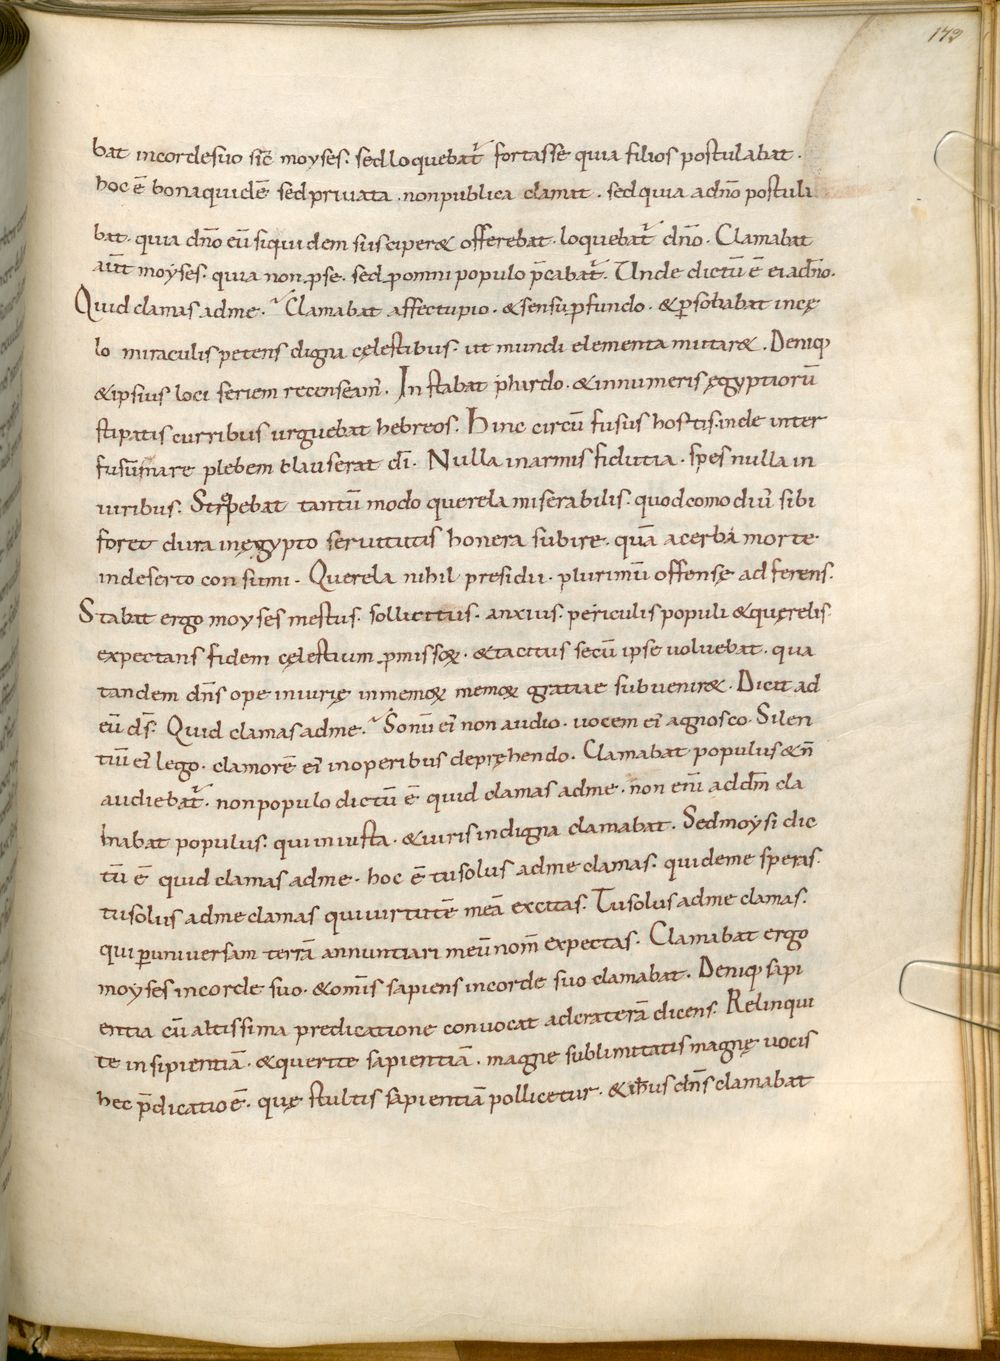 172
bat incordesuo sic̄ moyses. sedloquebat᷑ fortasse quia filios postulabat.
hoc ē bonaquidē sedpriuata. nonpublica clamat. sedquia adn̄o postula
bat. quia dn̄o eū siquidem susciper& offerebat. loquebat᷑ dn̄o. Clamabat
aūt moyses. quia non ꝓse. sed ꝓomni populo p̄cabat᷑. Unde dictū ē ei adn̄o.
Quid clamas adme. Clamabat affectupio. &sensuꝓfundo. &ꝑsonabat incę
lo miraculis petens digna cęlestibus. ut mundi elementa mutar&. Deniq;
&ipsius loci seriem recenseam̄. Instabat pharao. &innumeris ęgyptiorū
stipatis curribus urguebat hebreos. Hinc circū fusus hostis. inde inter
fusūmare plebem clauserat dī. Nulla inarmis fidutia. spes nulla in
uiribus. Strepebat tantū modo querela miserabilis. quodcomodiu᷑ sibi
foret dura inęgypto seruitutis honera subire. quā acerba morte
indeserto consumi. Querela nihil presidii. plurimū offensę adferens.
Stabat ergo moyses mestus. sollicitus. anxius. periculis populi &quęrelis.
expectans fidem cęlestium ꝓmissoꝝ. &tacitus secū ipse uoluebat. qua
tandem dn̄s ope iniurię inmemoꝝ memoꝝ gratiae subuenir&. Dicit ad
eū ds̄. Quid clamas adme. Sonū ei᷑ non audio. uocem ei᷑ agnosco. Silen
tiū ei᷑ lego. clamorē ei᷑ inoperibus depręhendo. Clamabat populus &n̄
audiebat᷑. nonpopulo dictū ē quid clamas adme. non eni᷑ addm̄ cla
mabat populus. qui iniusta. &uiris indigna clamabat. Sedmoysi dic
tū ē quid clamas adme. hoc ē tusolus adme clamas. quideme speras.
tusolus adme clamas quiuirtutē meā excitas. Tusolus adme clamas.
qui ꝑuniuersam terrā annuntiari meū nom̄ expectas. Clamabat ergo
moyses incorde suo. &om̄is sapiens incorde suo clamabat. Deniq; sapi
entia cū altissima predicatione conuocat adcraterā dicens. Relinqui
te insipientiā. &querite sapientiā. magne sublimitatis magnę uocis
hec p̄dicatio ē. quę stultis sapientiā pollicetur. &ih̄us dn̄s clamabat